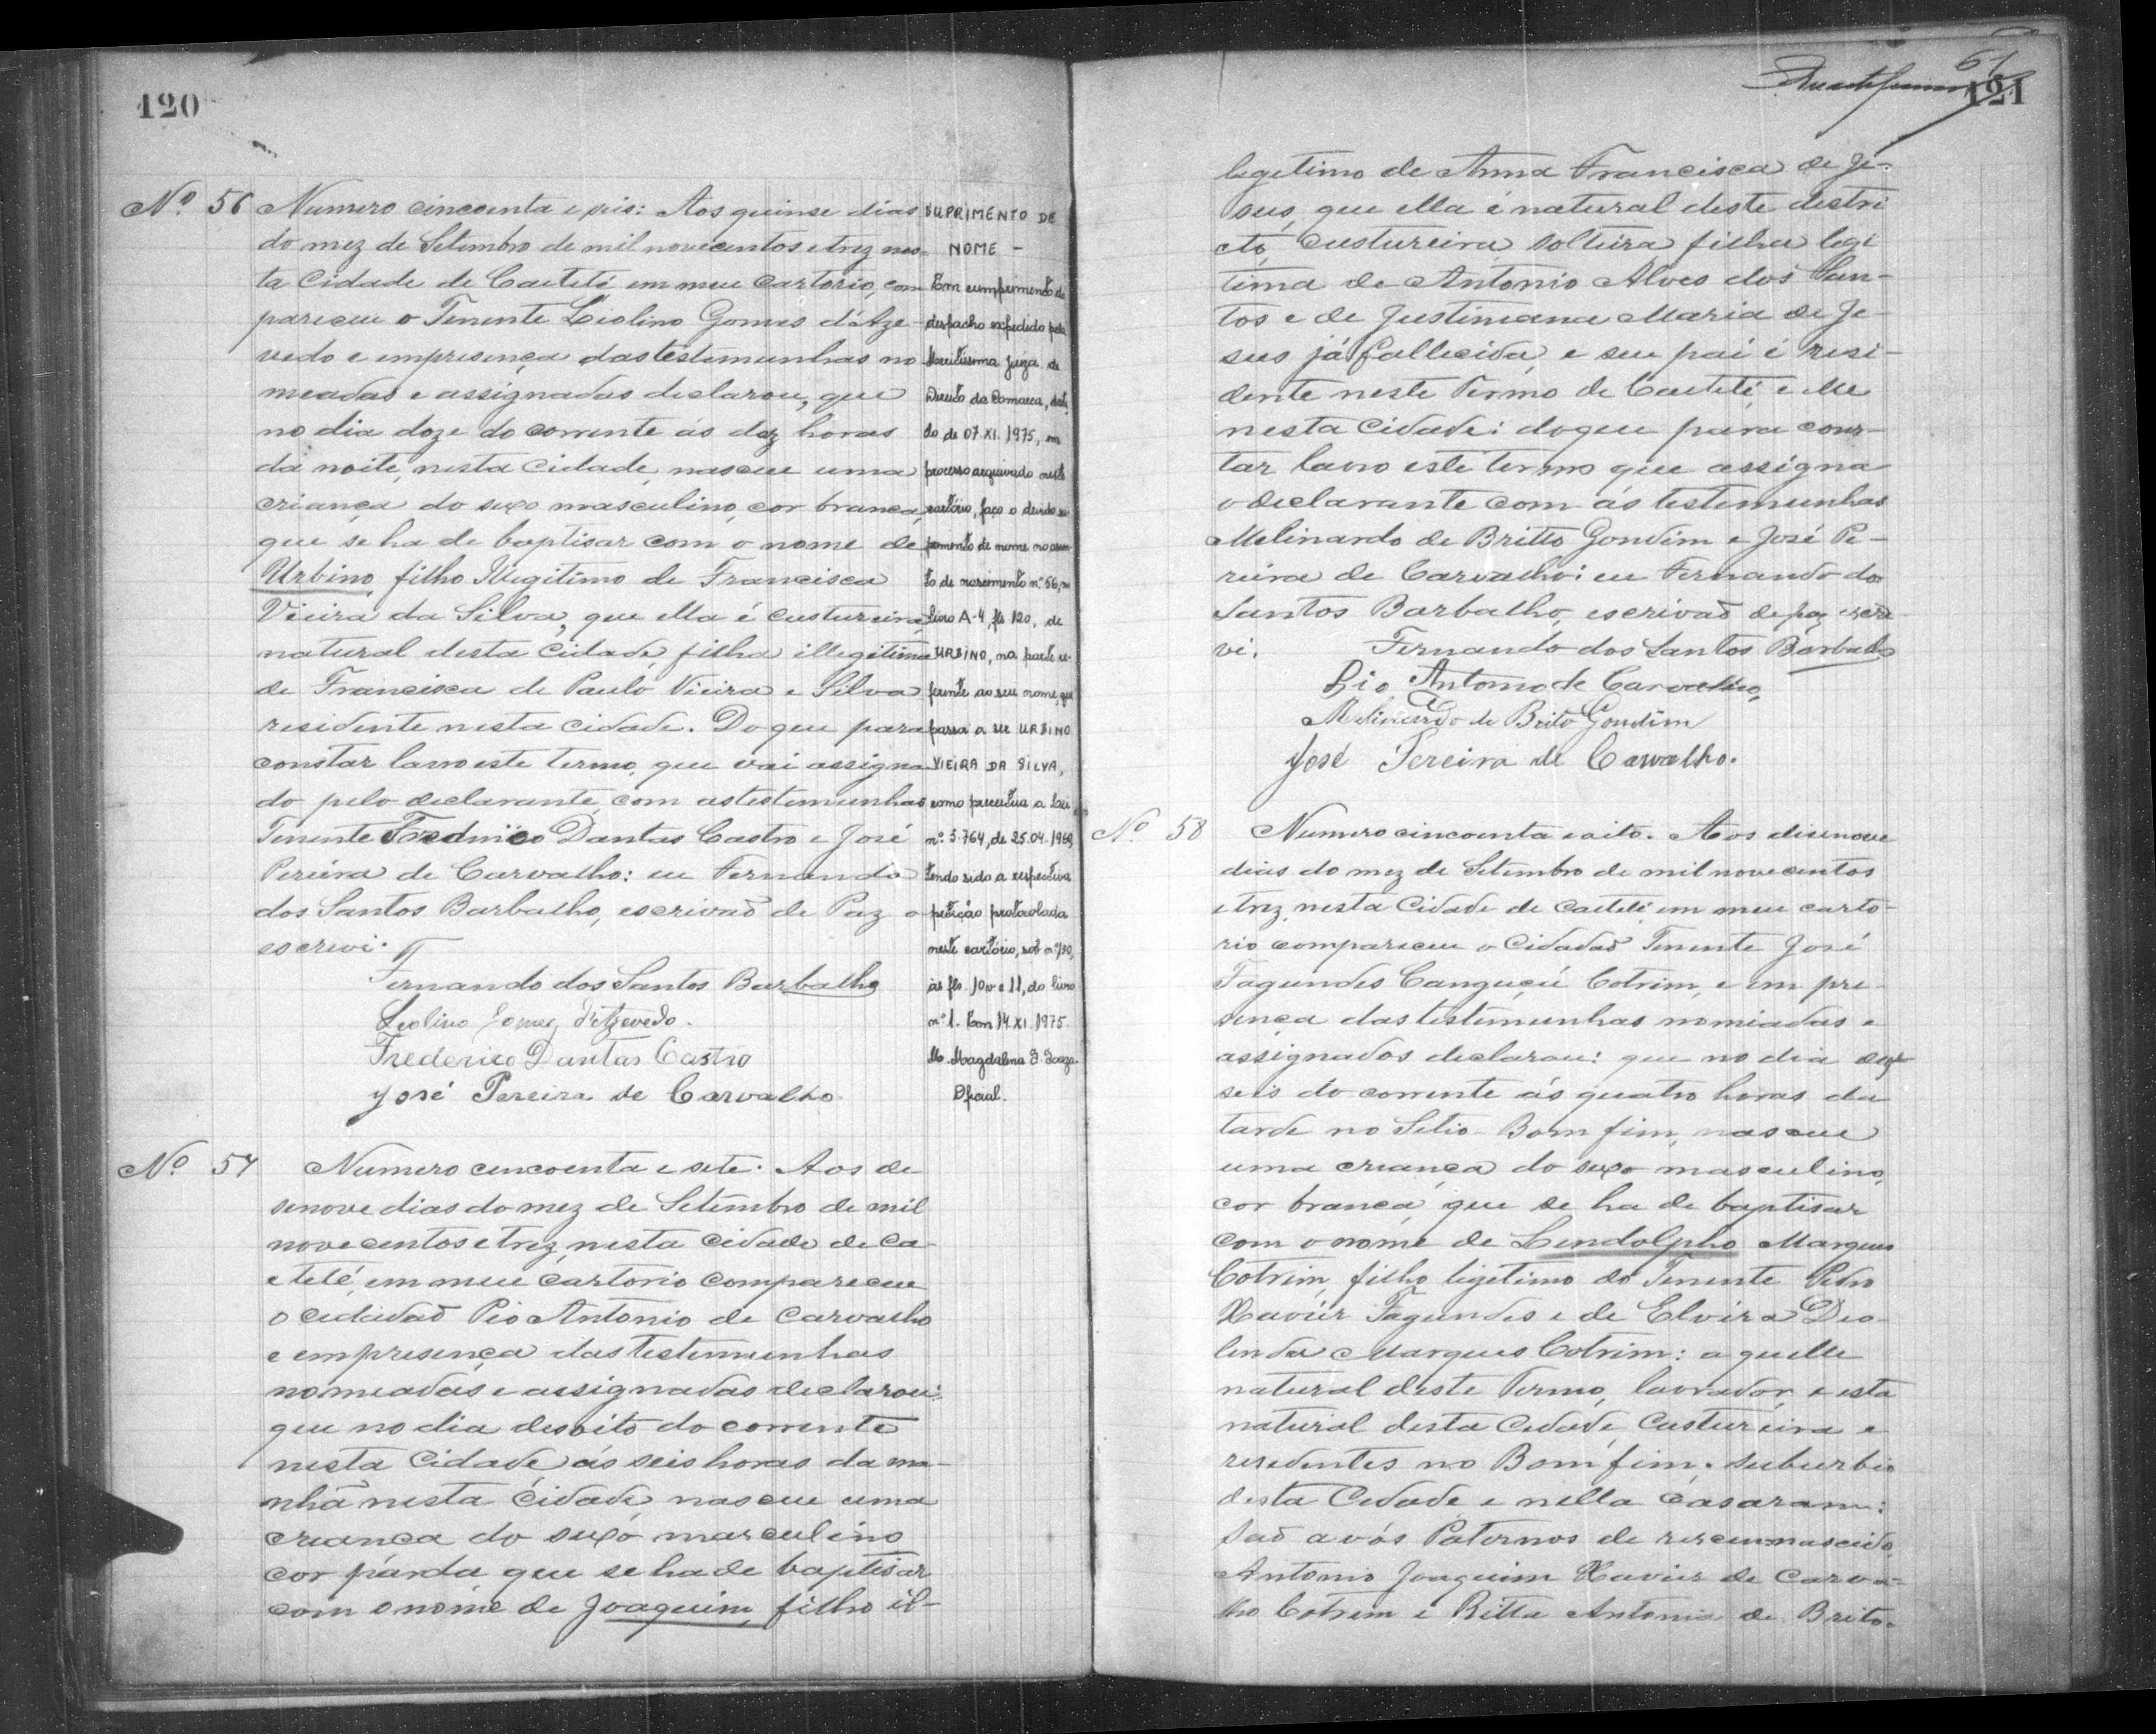 120
Nº 56 Numero cincoenta e seis: Aos quinse dias
do mez de Setembro de mil novecentos e trez nes-
ta Cidade de Caeteté em meu Cartorio, com
pareceu o Tenente Liolino Gomes d'Aze-
vedo e empresença das testemunhas no
meadas e assignadas declarou, que
no dia doze do corrente ás dez horas
da noite, nesta Cidade, nasceu uma
criança do sexo masculino, cor branca,
que se ha de baptisar com o nome de
Urbino, filho Illegitimo de Francisca
Vieira da Silva, que ella é custureira,
natural desta Cidade, filha illegitima
de Francisca de Paulo Vieira e Silva
residente nesta cidade. Do que para
constar lavro este termo, que vai assigna
do pelo declarante, com as testemunhas
Tenente Frederico Dantas Castro e José
Pereira de Carvalho: eu Fernando
dos Santos Barbalho, escrivaõ de Paz o
escrevi.
Fernando dos Santos Barbalho
Leolino Gomes d'Azevedo.
Frederico Dantas Castro
José Pereira de Carvalho
SUPRIMENTO DE
NOME -
Em cumprimento do
despacho expedido pela
Meritíssima Juíza de
Direito da Comarca, data
do de 07.XI.1975, em
processo arquivado neste
cartório, faço o devido su-
primento de nome no assen
to de nascimento nº 56, no
Livro A-4, fls 120, de
URBINO, na parte re-
ferente ao seu nome, que
passa a ser URBINO
VIEIRA DA SILVA,
como preceitua a Lei
nº 5.764, de 25.04.1969,
tendo sido a respectiva
petição protocolada
neste cartório, sob nº 130,
às fls. 10v e 11, do livro
nº 1. Em 14.XI.1975.
M. Magdalena J. Souza.
Oficial.
Nº 57 Numero cincoenta e sete. Aos de
senove dias do mez de Setembro de mil
novecentos e trez, nesta cidade de Ca-
eteté, em meu cartorio compareceu
o cidadaõ Pio Antonio de Carvalho
e empresença das testemunhas
nomeadas e assignadas declarou:
que no dia desoito do corrente
nesta Cidade ás seis horas da ma-
nhã nesta Cidade nasceu uma
creança do sexo masculino
cor parda que se ha de baptisar
com o nome de Joaquim, filho il-
61
121
legetimo de Anna Francisca de Je-
sus, que ella é natural deste destri
cto, custureira, solteira, filha legi
tima de Antonio Alves dos San-
tos e de Justiniana Maria de Je-
sus já fallecida, e seu pai é resi-
dente neste Termo de Caeteté e elle
nesta Cidade: do que para cons-
tar lavro este termo que assigna
o declarante com ás testemunhas
Melinardo de Britto Gondim e José Pe-
reira de Carvalho: eu Fernando dos
Santos Barbalho, escrivaõ de paz escre
vi. Fernando dos Santos Barbalho
Pio Antonio de Carvalho,
Melinardo de Brito Gondim
José Pereira de Carvalho.
Nº 58 Numero cincoenta e oito. Aos disenove
dias do mez de Setembro de mil novecentos
e trez, nesta Cidade de Caeteté, em meu carto-
rio compareceu o Cidadaõ Tenente José
Fagundes Canguçú Cotrim, e em pre
sença das testemunhas nomiadas e
assignados declarou: que no dia dez
seis do corrente ás quatro horas da
tarde no Sitio-Bom fim, nasceu
uma creança do sexo masculino,
cor branca, que se ha de baptisar
com o nome de Lindolpho Marques
Cotrim, filho ligetimo do Tenente Pedro
Xavier Fagundes e de Elvira Deo-
linda Marques Cotrim: aquelle
natural deste Termo, lavrador, e esta
natural desta Cidade, Custureira e
resedentes no Bom fim. suburbio
desta Cedade e nella casaram:
Saõ avós Paternos de recemnascido,
Antonio Joaquim Xavier de Carva-
lho Cotrim e Ritta Antonia de Brito.